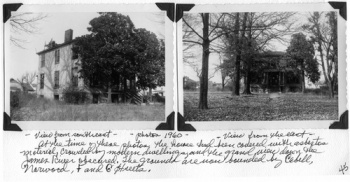 - View from southeast - - photos 1960 - - View from the east -
At the time of these photos, the house had been covered with asbestos
material, crowded by modern dwellings, and the grand view down the
James River obscured. The grounds are now bounded by Cabell,
Norwood, F and C Streets.